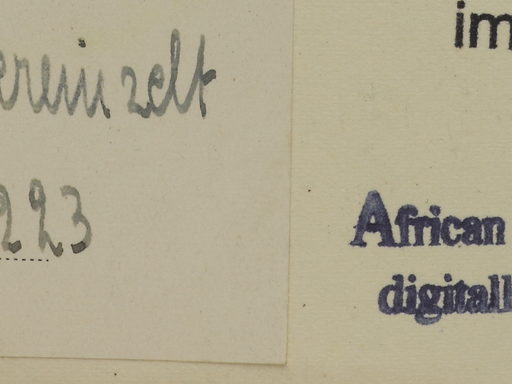 im
ereinzelt
223
African
digitall